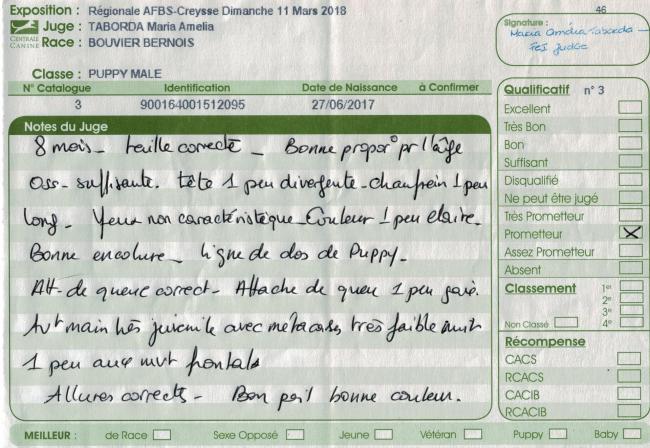 Exposition : Régionale AFBS-Creysse Dimanche 11 Mars 2018
46
Juge : TABORDA Maria Amelia
CENTRALE CANINE
Race : BOUVIER BERNOIS
Signature :
Maria Amélia Taborda -
FCI judge
Classe : PUPPY MALE
N° Catalogue Identification Date de Naissance à Confirmer
3 900164001512095 27/06/2017
Notes du Juge
8 mois - taille correcte - Bonne propor° pr l'âge
Oss - suffisante. tête 1 peu divergente - chanfrein 1 peu
long - Yeux non caractéristique - Couleur 1 peu claire.
Bonne encolure - ligne de dos de Puppy -
Att - de queue correct - Attache de queu 1 peu
Avt main très juvenile avec métacarpes très faible
1 peu aux mvt frontals
Allures corrects - Bon poil bonne couleur.
Qualificatif n° 3
Excellent
Très Bon
Bon
Suffisant
Disqualifié
Ne peut être jugé
Très Prometteur
Prometteur X
Assez Prometteur
Absent
Classement 1er
2e
3e
Non Classé 4e
Récompense
CACS
RCACS
CACIB
RCACIB
MEILLEUR : de Race Sexe Opposé Jeune Vétéran Puppy Baby